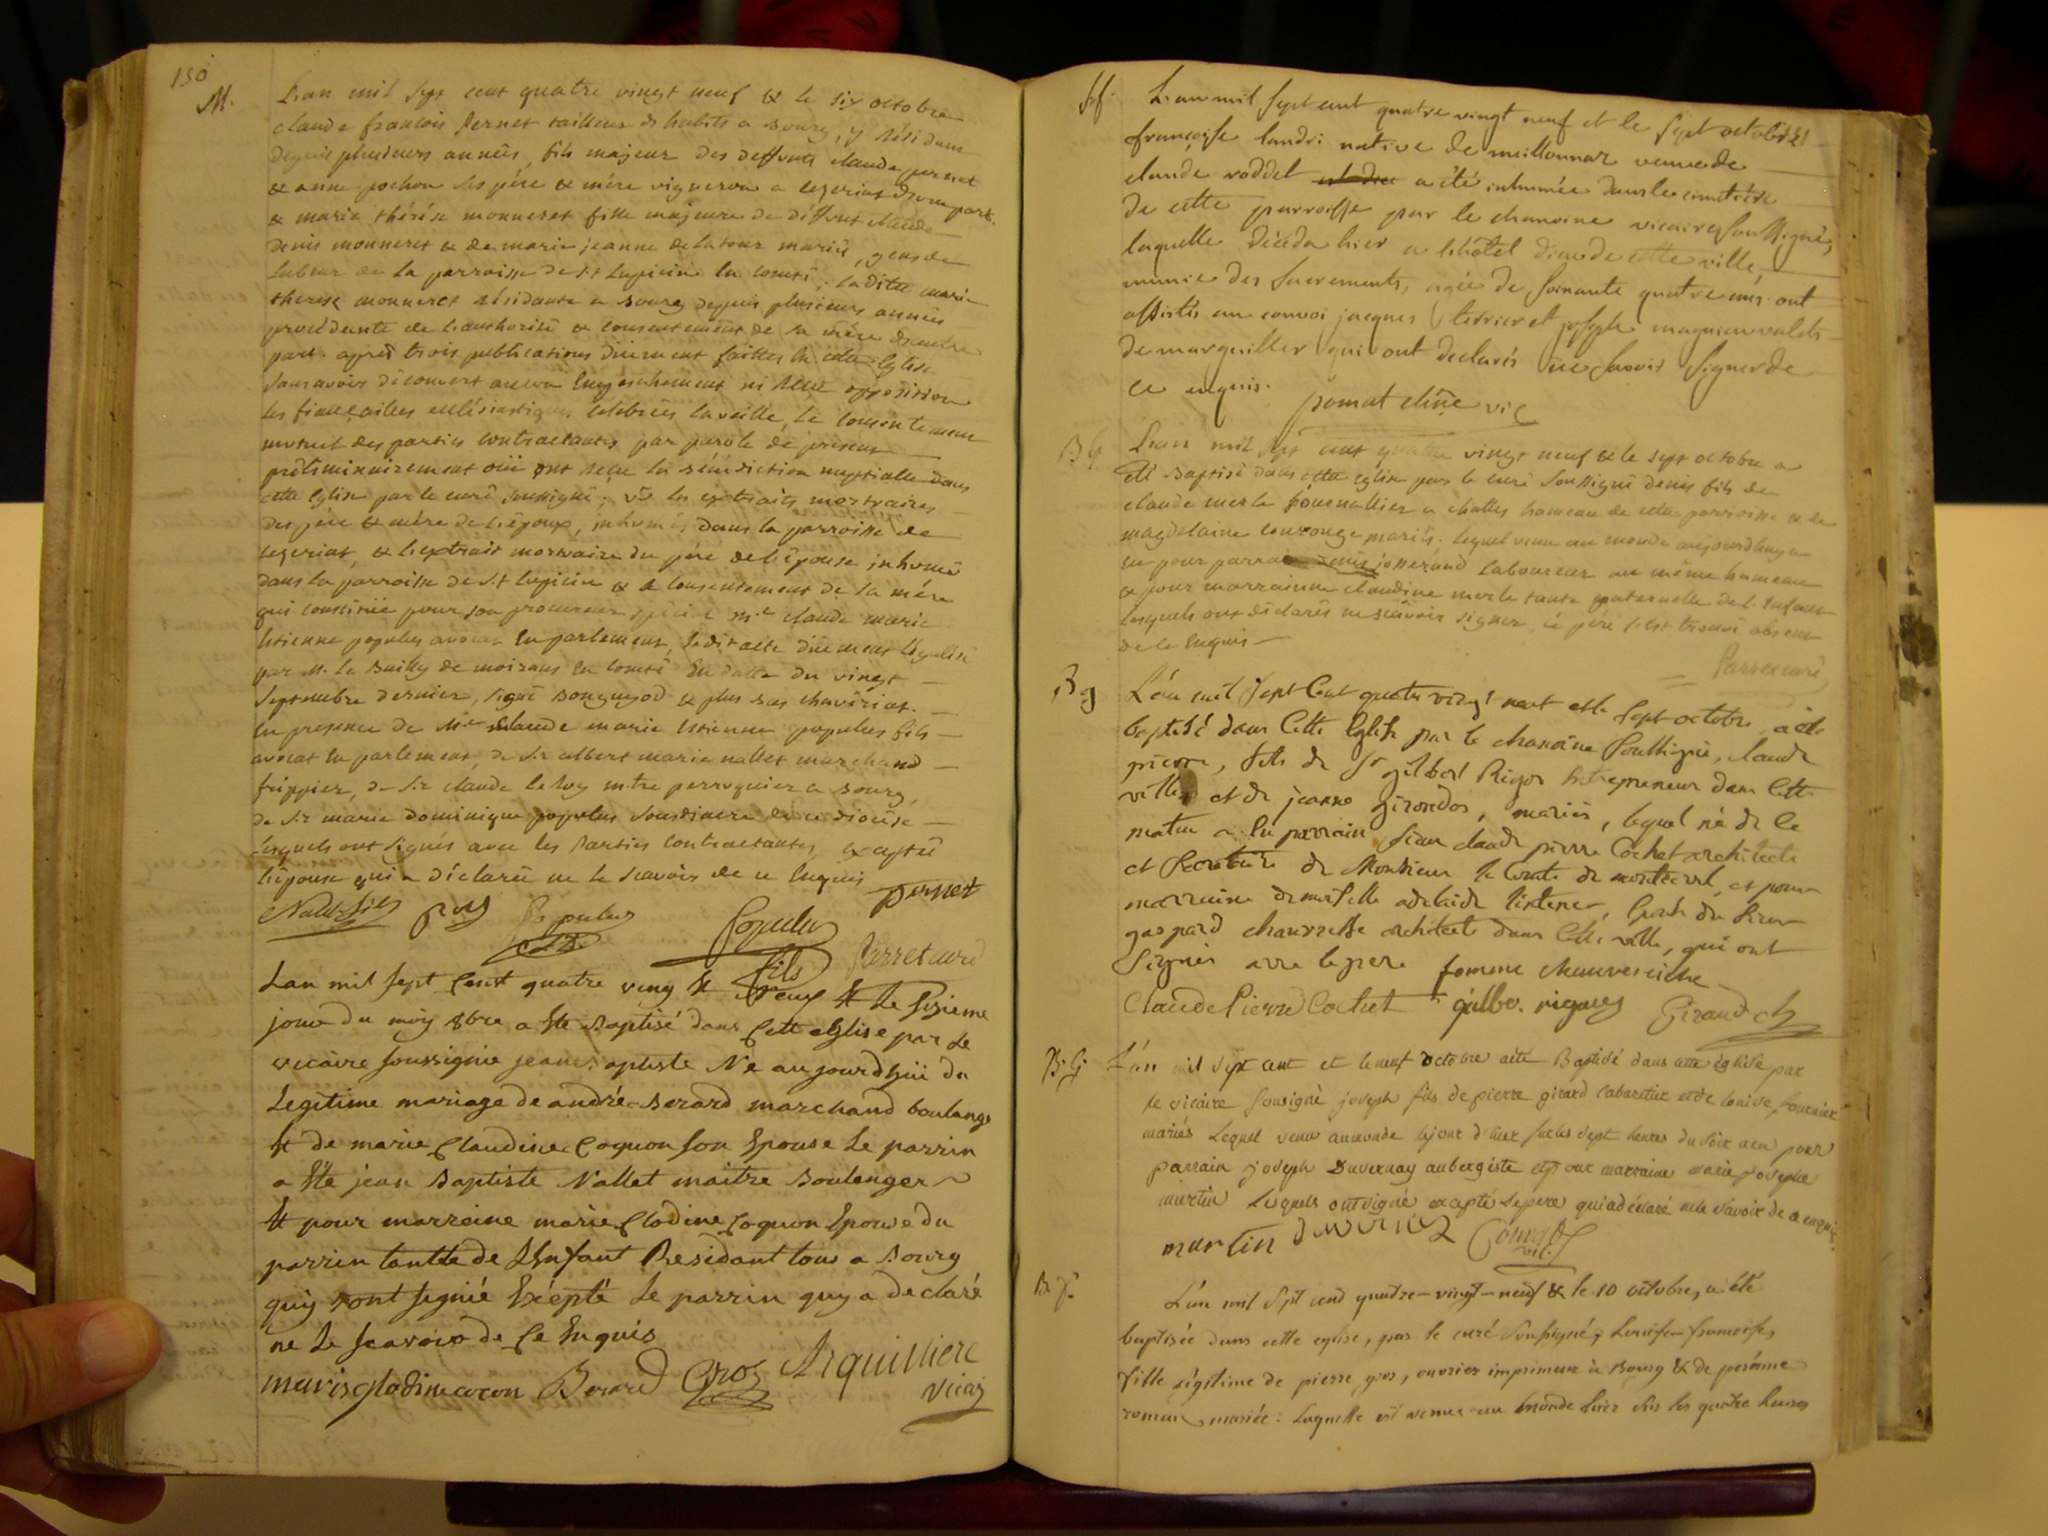 150
M.
L'an mil sept cent quatre vingt neuf & le six octobre
claude francois Pernet tailleur d'habits a Bourg, y résidant
depuis plusieurs années, fils majeur des deffunts claude pernet
& anne pochon ses père & mère vignerons a ceyseriat d'une part.
& marie thérése monneret fille majeure de déffunt claude
denis monneret & de marie jeanne delatour mariés, gens de
labeur de la parroisse de St Lupicin en comté ; ladite marie
therese monneret résidante a Bourg depuis plusieurs années
procédante de l'authorité & consentement de sa mère d'autre
part. après trois publications düement faittes en cette Eglise
sans avoir découvert aucun Empêchement ni reçu opposition
les fiançailles ecclésiastiques celebrées la veille, le consentement
mutuel des parties contractantes par parole de présent
préliminairement oüi ont reçu la bénédiction nuptialle dans
cette Eglise par le curé soussigné ; vû les extraits mortuaires
des père & mère de l'époux, inhumés dans la parroisse de
ceyseriat, & l'extrait mortuaire du père de l'épouse inhumé
dans la parroisse de St Lupicin & le consentement de la mére
qui constitüe pour son procureur spécial mre claude marie
Etienne populus avocat En parlement, ledit acte düement légalisé
par M. le Bailly de moirans En comté En datte du vingt
septembre dernier, signé Bouguyod & plus bas chaviriat.
En presence de Mre claude marie Etienne populus fils
avocat En parlement, de Sr albert marie nallet marchand
frippier, de Sr claude le Roy mtre perruquier a Bourg,
de Sr marie dominique populus sousdiacre de ce diocése
lesquels ont signés avec les Parties contractantes, excepté
l'épouse qui a déclaré ne le scavoir de ce Enquis
Pernet
Populus
Populus
fils
Parret curé
Lan mil sept Cent quatre ving Et Neuf Et Le sizieme
jour du moy 8bre a Ete Baptisé dans Cett eglise par Le
vicaire soussignie jean Baptiste Ne aujourdhui du
Legitime mariage de andré Berard marchand boulange
Et de marie Claudine Coquon son Epouse Le parrin
a Ete jean Baptiste Nallet maitre Boulenger
Et pour marreine marie Clodine Coquon Epouse du
parrin tantte de L'Enfant Residant tous a Bourg
quy ront signié Exépté Le parrin quy a declaré
ne Le scavoir de Ce Enquis
marie glodine cocon Berard Gros Arquilliere
vicai
Sf.
L'an mil sept cent quatre vingt neuf et le sept octobre
françoise landri native de meillonnaz veuve de
claude voddet a été inhumée dans le cimetiére
de cette parroisse par le chanoine vicaire soussigné,
laquelle décéda hier a l'hôtel dieu de cette ville,
munie des sacrements, agée de soixante quatre ans. ont
assistés au convoi jacques terrier et joseph magnien valets
de marguiller qui ont declarés ne savoir signer de
ce enquis.
pomat chne vic
B G
L'an mil sept cent quatre vingt neuf & le sept octobre a
été Baptisé dans cette eglise par le curé soussigné denis fils de
claude merle a challes hameau de cette parroisse & de
magdelaine couronge mariés. lequel venu au monde aujourdhuy a
eu pour parrain denis josserand laboureur au même hameau
& pour marrainne claudine merle tante paternelle de l'Enfant
lesquels ont déclarés ne sçavoir signer, le pére s'est trouvé absent
de ce Enquis
Parret curé
B g
L'an mil sept Cent quatre vingt neuf et le sept octobre a été
baptisé dans Cette Eglise par le chanoine soussigné, claude
pierre, fils de Sr gilbert Rigos Entrepreneur dans Cette
ville et de jeanne girondos, mariés, lequel né de ce
matin a Eu parrain sieur claude pierre Cochet architecte
et secretaire de Monsieur le Comte de montrevel, et pour
marraine demoiselle adelaide , Epouse du sieur
gaspard chauvreiche architecte dans Cette ville, qui ont
signés avec le pere femme chauvereiche
Claude Pierre Cochet gilbe. rigaus Giraud ch
B. G.
L'an mil sept cent et le neuf octobre a été Baptisé dans cette église par
le vicaire sousigné joseph fils de pierre girard cabaretier et de louise fournier
mariés Lequel venu au monde le jour d'hier sur les sept heures du soir a eu pour
parrain joseph Duvernay aubergiste et pour marraine marie josephe
martin Lesquels ont signé excepté Le pere qui a déclaré ne le savoir de ce enquis.
martin Duvernay
vic.
B. f.
L'an mil sept cent quatre-vingt-neuf & le 10 octobre, a été
baptisée dans cette eglise, par le curé soussigné, Louise-françoise,
fille légitime de pierre gros, ouvrier imprimeur à Bourg & de
roman mariés : Laquelle est venue au monde hier sur les quatre heures